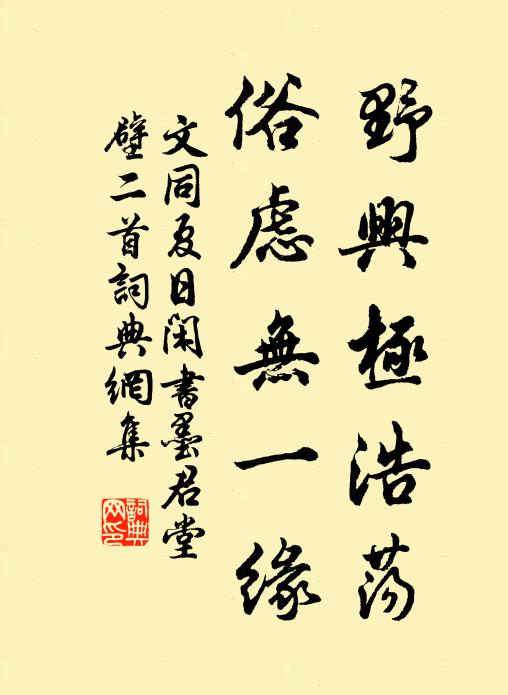 野興極浩蕩
俗慮無一緣
文同夏日閑書墨君堂
壁二首詞典網集
詞典网印